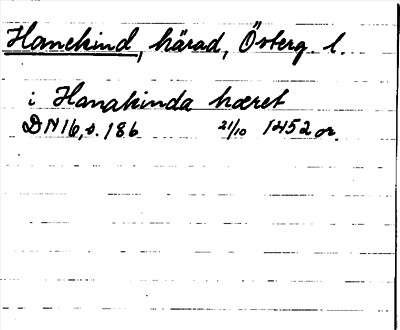 Hanekind, härad, Österg. l.
i Hanakinda hæret
DN 16, s. 186 21/10 1452 or.